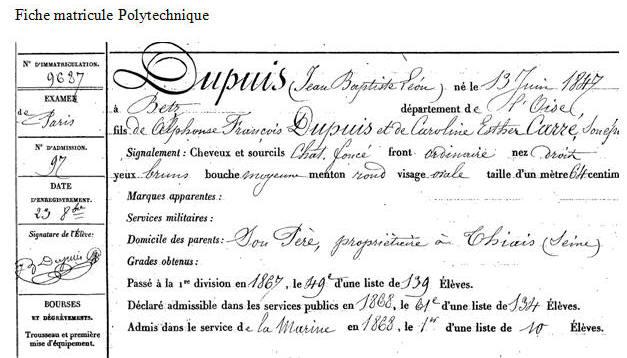 Fiche matricule Polytechnique
N° D'IMMATRICULATION.
9637
EXAMEN
de Paris
N° D'ADMISSION.
97
DATE
D'ENREGISTREMENT.
23 8bre
Signature de l'Élève:
Dupuis
BOURSES
ET DÉGRÈVEMENTS.
Trousseau et première
mise d'équipement.
Dupuis (Jean Baptiste Léon) né le 13 Juin 1847
à Betz département de l'Oise,
fils de Alphonse François Dupuis et de Caroline Esther Carré,
Signalement: Cheveux et sourcils chat. foncé front ordinaire nez droit
yeux bruns bouche moyenne menton rond visage ovale taille d'un mètre 64 centim
Marques apparentes:
Services militaires:
Domicile des parents: Son Père, propriétaire à Thiais (Seine)
Grades obtenus:
Passé à la 1re division en 1867, le 49e d'une liste de 139 Élèves.
Déclaré admissible dans les services publics en 1868, le 61e d'une liste de 134 Élèves.
Admis dans le service de la Marine en 1868, le 1er d'une liste de 10 Élèves.